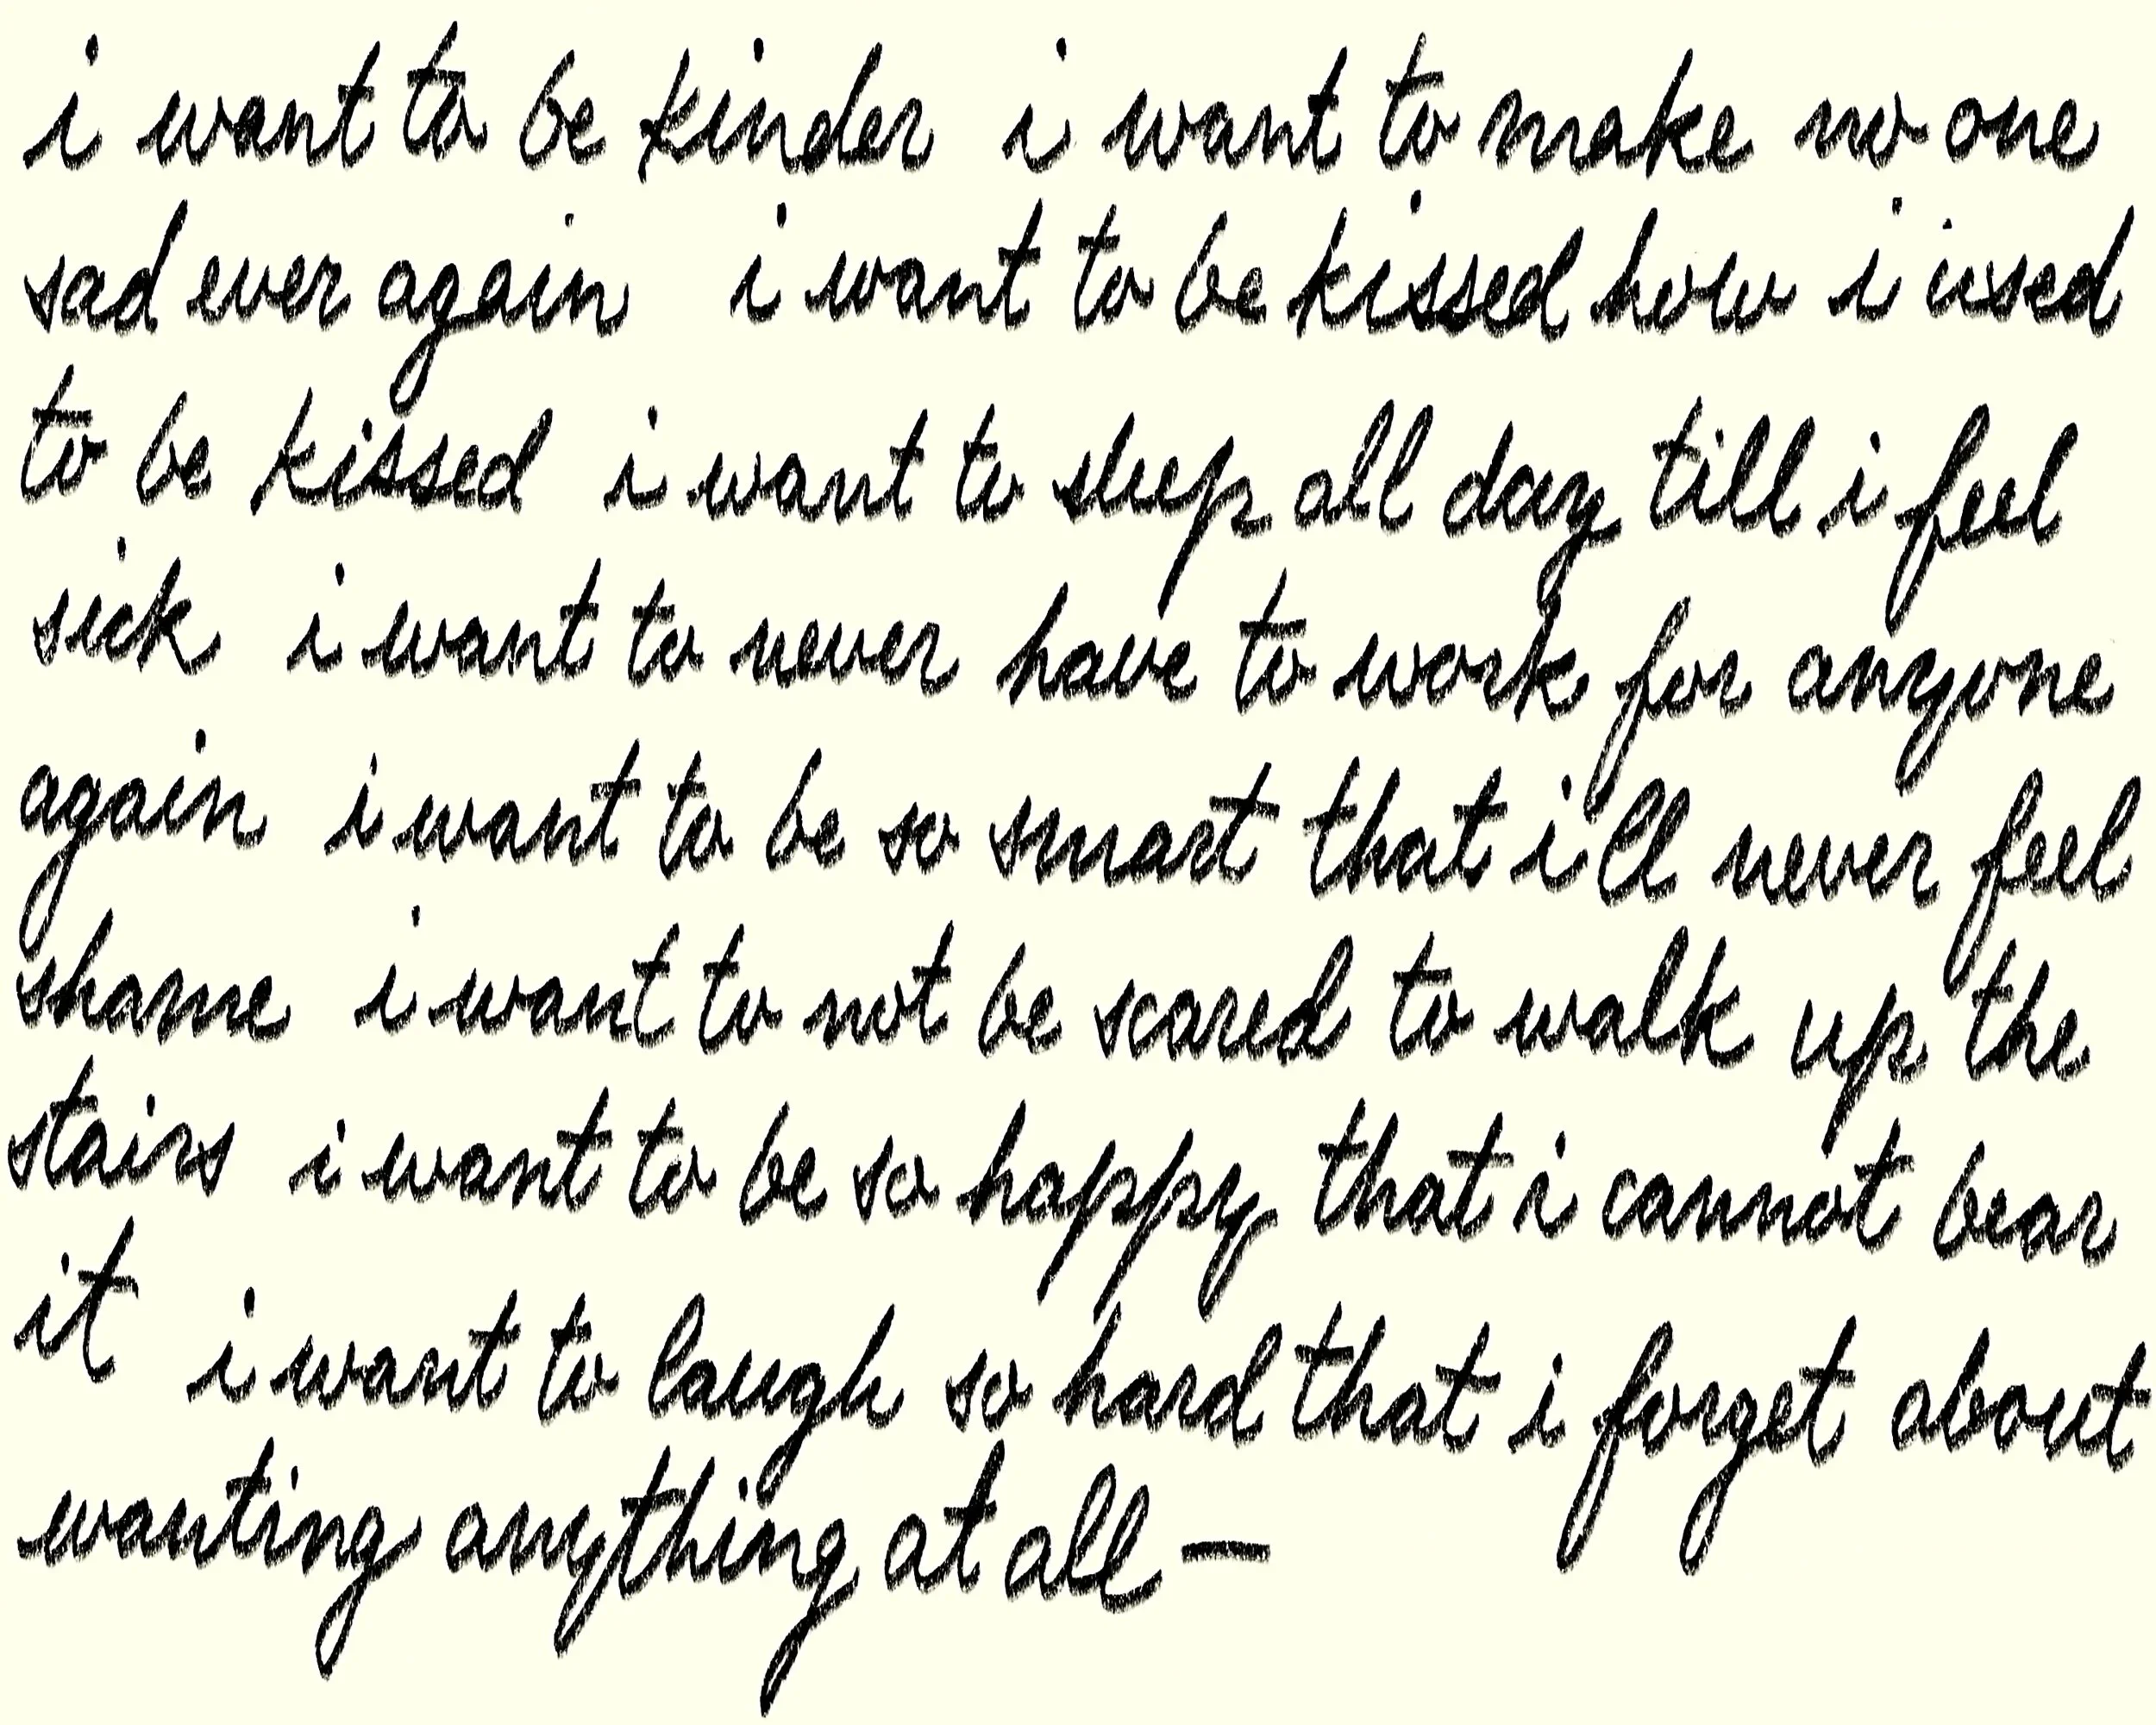 i want to be kinder i want to make no one
sad ever again i want to be kissed how i used
to be kissed i want to sleep all day till i feel
sick i want to never have to work for anyone
again i want to be so smart that i'll never feel
shame i want to not be scared to walk up the
stairs i want to be so happy that i cannot bear
it i want to laugh so hard that i forget about
wanting anything at all—